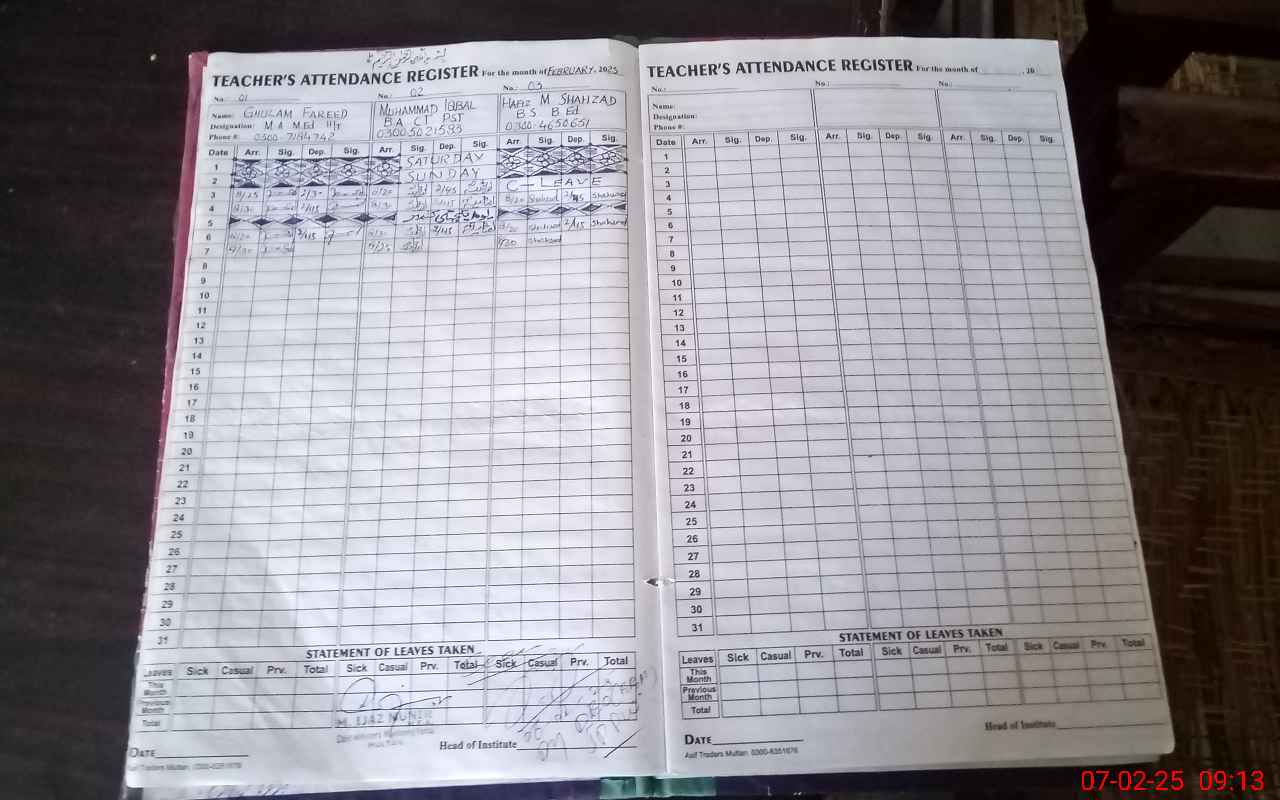 TEACHER'S ATTENDANCE REGISTER For the month of FEBRUARY, 2025
No.: 01 No.: 02 No.: 03
Name: GHULAM FAREED MUHAMMAD IQBAL HAFIZ M SHAHZAD
Designation: M A M Ed BA CT PST BS B Ed
Phone #: 0300-7184742 03005021593 0300-4650651
Date Arr. Sig. Dep. Sig. Arr. Sig. Dep. Sig. Arr. Sig. Dep. Sig.
1 SATURDAY
2 SUNDAY
3 C-LEAVE
4 Shahzad 2/45 Shahzad
5
6 2/45 2/45 Shahzad 2/45 Shahzad
7 Shahzad
8
9
10
11
12
13
14
15
16
17
18
19
20
21
22
23
24
25
26
27
28
29
30
31
STATEMENT OF LEAVES TAKEN
Leaves Sick Casual Prv. Total Sick Casual Prv. Total Sick Casual Prv. Total
This Month
Previous Month
Total
M. IJAZ MUNIR
DATE Head of Institute
Asif Traders Multan. 0300-6351676
TEACHER'S ATTENDANCE REGISTER For the month of , 20
No.: No.: No.:
Name:
Designation:
Phone #:
Date Arr. Sig. Dep. Sig. Arr. Sig. Dep. Sig. Arr. Sig. Dep. Sig.
1
2
3
4
5
6
7
8
9
10
11
12
13
14
15
16
17
18
19
20
21
22
23
24
25
26
27
28
29
30
31
STATEMENT OF LEAVES TAKEN
Leaves Sick Casual Prv. Total Sick Casual Prv. Total Sick Casual Prv. Total
This Month
Previous Month
Total
Head of Institute
DATE
Asif Traders Multan 0300-6351676
07-02-25 09:13